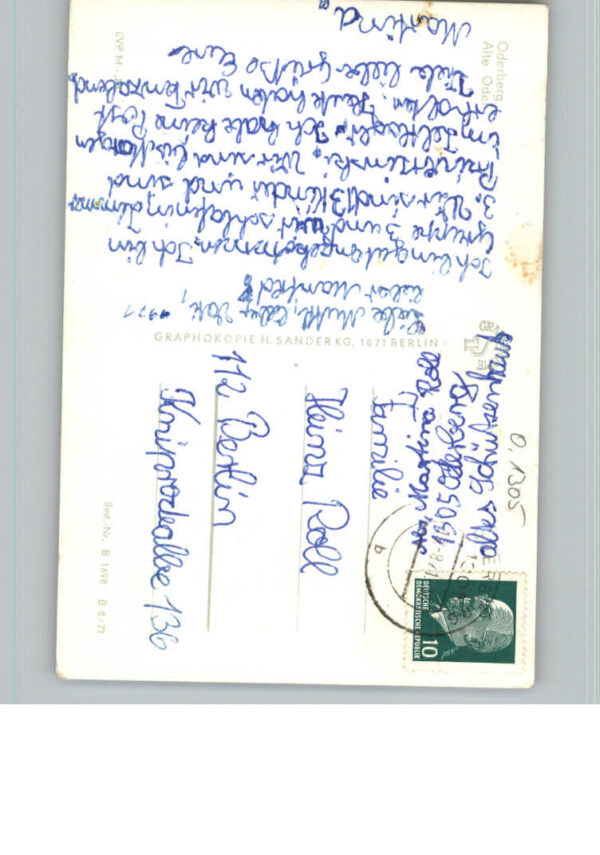 Oderberg
Alte Ode
Liebe Mutti, lieber Vati, 1971
lieber Manfred!
Ich bin gut angekommen. Ich bin
Gruppe 3 und wir schlafen in Zimmer
3. Wir sind 13 Kinder und sind
Wir sind bis Morgen
im Zeltlager. Ich habe keine Post
erhalten. Heute haben wir Fernsehabend
Viele liebe Grüße Eure
Martina
EVP M
GRAPHOKOPIE H. SANDER KG, 1071 BERLIN
Martina Roll
1305 Oderberg
0.1305
DEUTSCHE
DEMOKRATISCHE REPUBLIK
10
Familie
Heinz Roll
112 Berlin
Kniprodeallee 136
Best.-Nr. B 1698 B 8/71